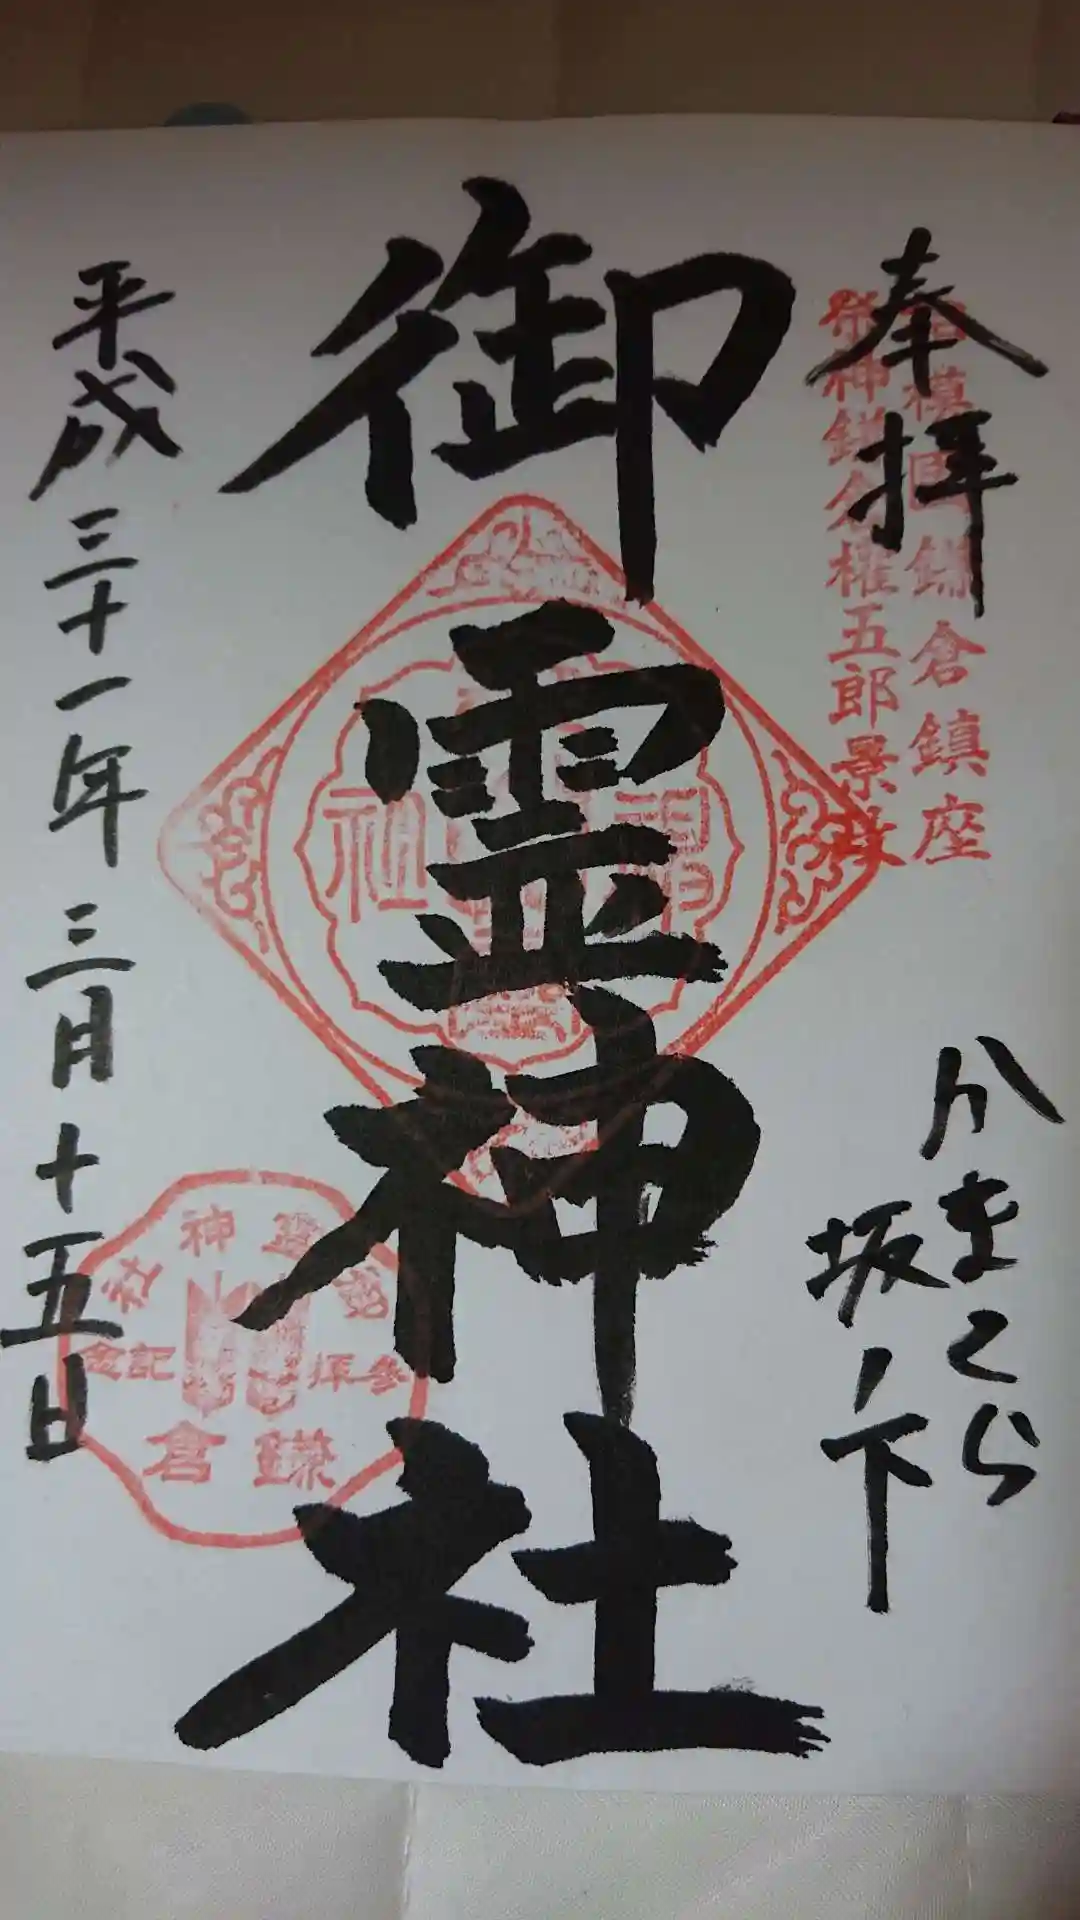 奉拝
相模国鎌倉鎮座
祭神鎌倉権五郎景政
かまくら
坂ノ下
御霊神社
平成三十一年三月十五日
御霊神社
参拝記念
鎌倉